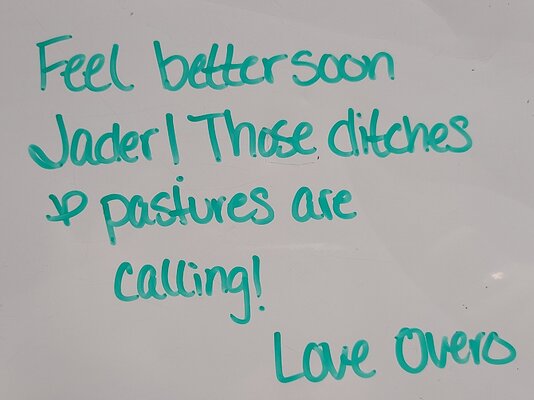 Feel better soon
Jader! Those ditches
& pastures are
calling!
Love Overs